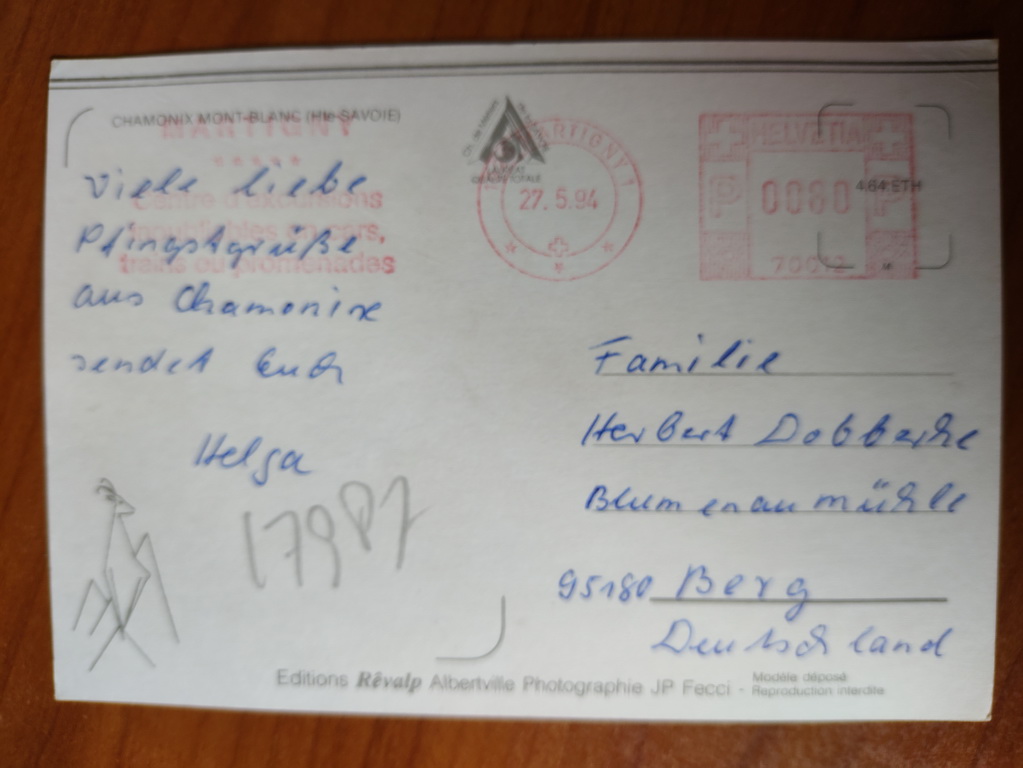 CHAMONIX MONT-BLANC (Hte-SAVOIE)
MARTIGNY
Centre d'excursions
inoubliables en cars,
trains ou promenades
MARTIGNY 1
27.5.94
HELVETIA
P 0080 P
4.64 ETH
M
Viele liebe
Pfingstgrüße
aus Chamonix
sendet Euch
Helga
17987
Familie
Herbert
Blumenaumühle
95180 Berg
Deutschland
Editions Rêvalp Albertville Photographie JP Fecci - Modèle déposé
Reproduction interdite